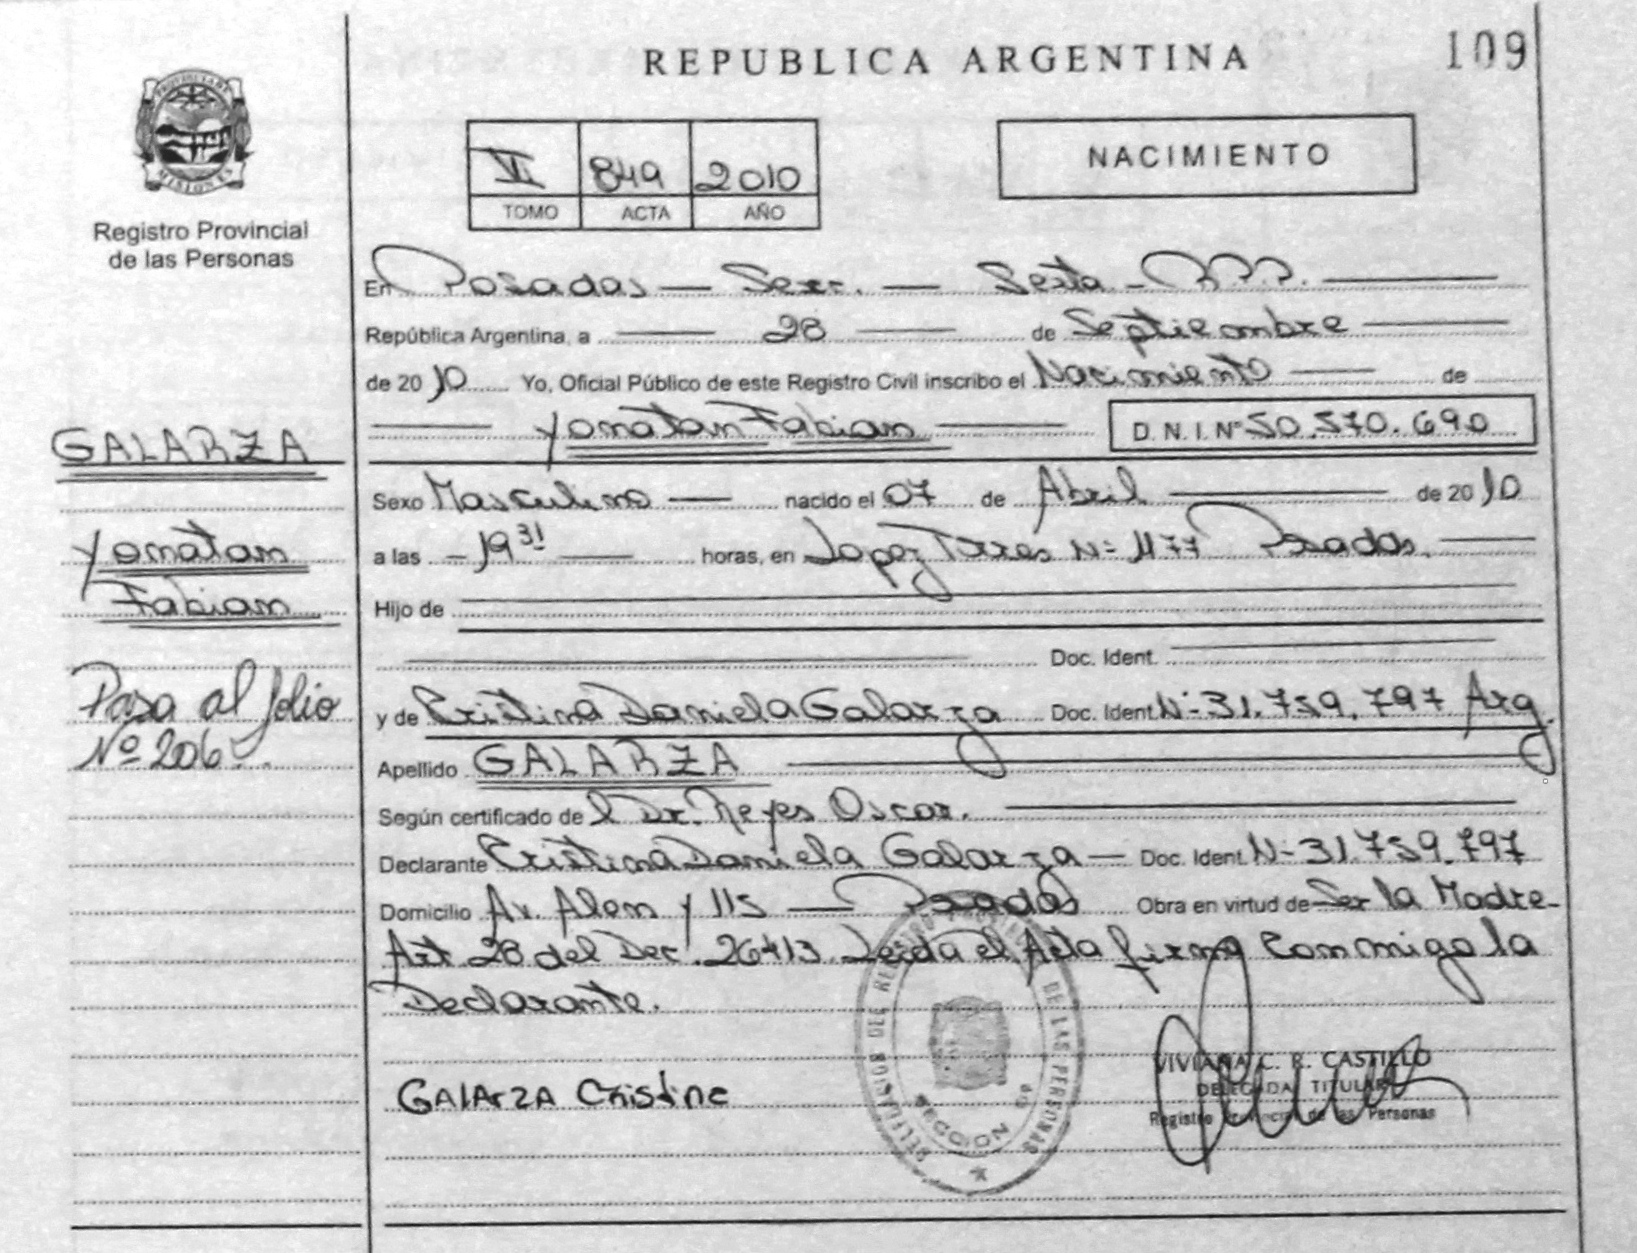 REPUBLICA ARGENTINA
109
PROVINCIA DE MISIONES
Registro Provincial
de las Personas
VI 849 2010
TOMO ACTA AÑO
NACIMIENTO
En Posadas — Secc. — Sexta - R.P.P.
República Argentina, a 28 de Septiembre
de 2010 Yo, Oficial Público de este Registro Civil inscribo el Nacimiento de
Yonatan Fabian D.N.I. Nº 50.570.690
GALARZA
Yonatan
Fabian
Pasa al folio
Nº 206
Sexo Masculino nacido el 07 de Abril de 2010
a las 19 31 horas, en Lopez Torres Nº 1177 Posadas.
Hijo de
Doc. Ident.
y de Cristina Daniela Galarza Doc. Ident. Nº 31.759.797 Arg.
Apellido GALARZA
Según certificado de l Dr. Reyes Oscar.
Declarante Cristina Daniela Galarza — Doc. Ident. Nº 31.759.797
Domicilio Av. Alem y 115 — Posadas Obra en virtud de Ser la Madre-
Art. 28 del Dec. 26413. Leida el Acta firma Conmigo la
Declarante.
GALArZA Cristina
DEL REGISTRO DE LAS PERSONAS
SECCION
VIVIANA C. R. CASTILLO
DELEGADA TITULAR
Registro Provincial de las Personas